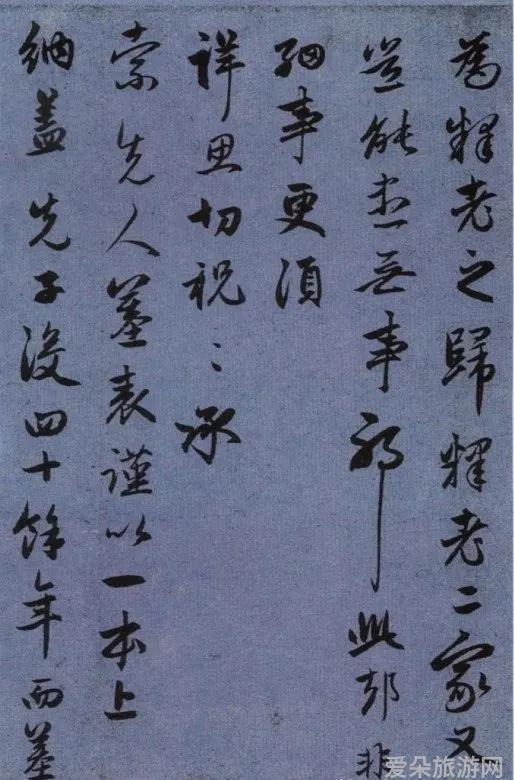 為釋老之歸釋老二家又
豈能無事邪此却非
細事更須
詳思切祝〻承
索先人墓表謹以一本上
納蓋先子沒四十餘年而墓
爱朵旅游网